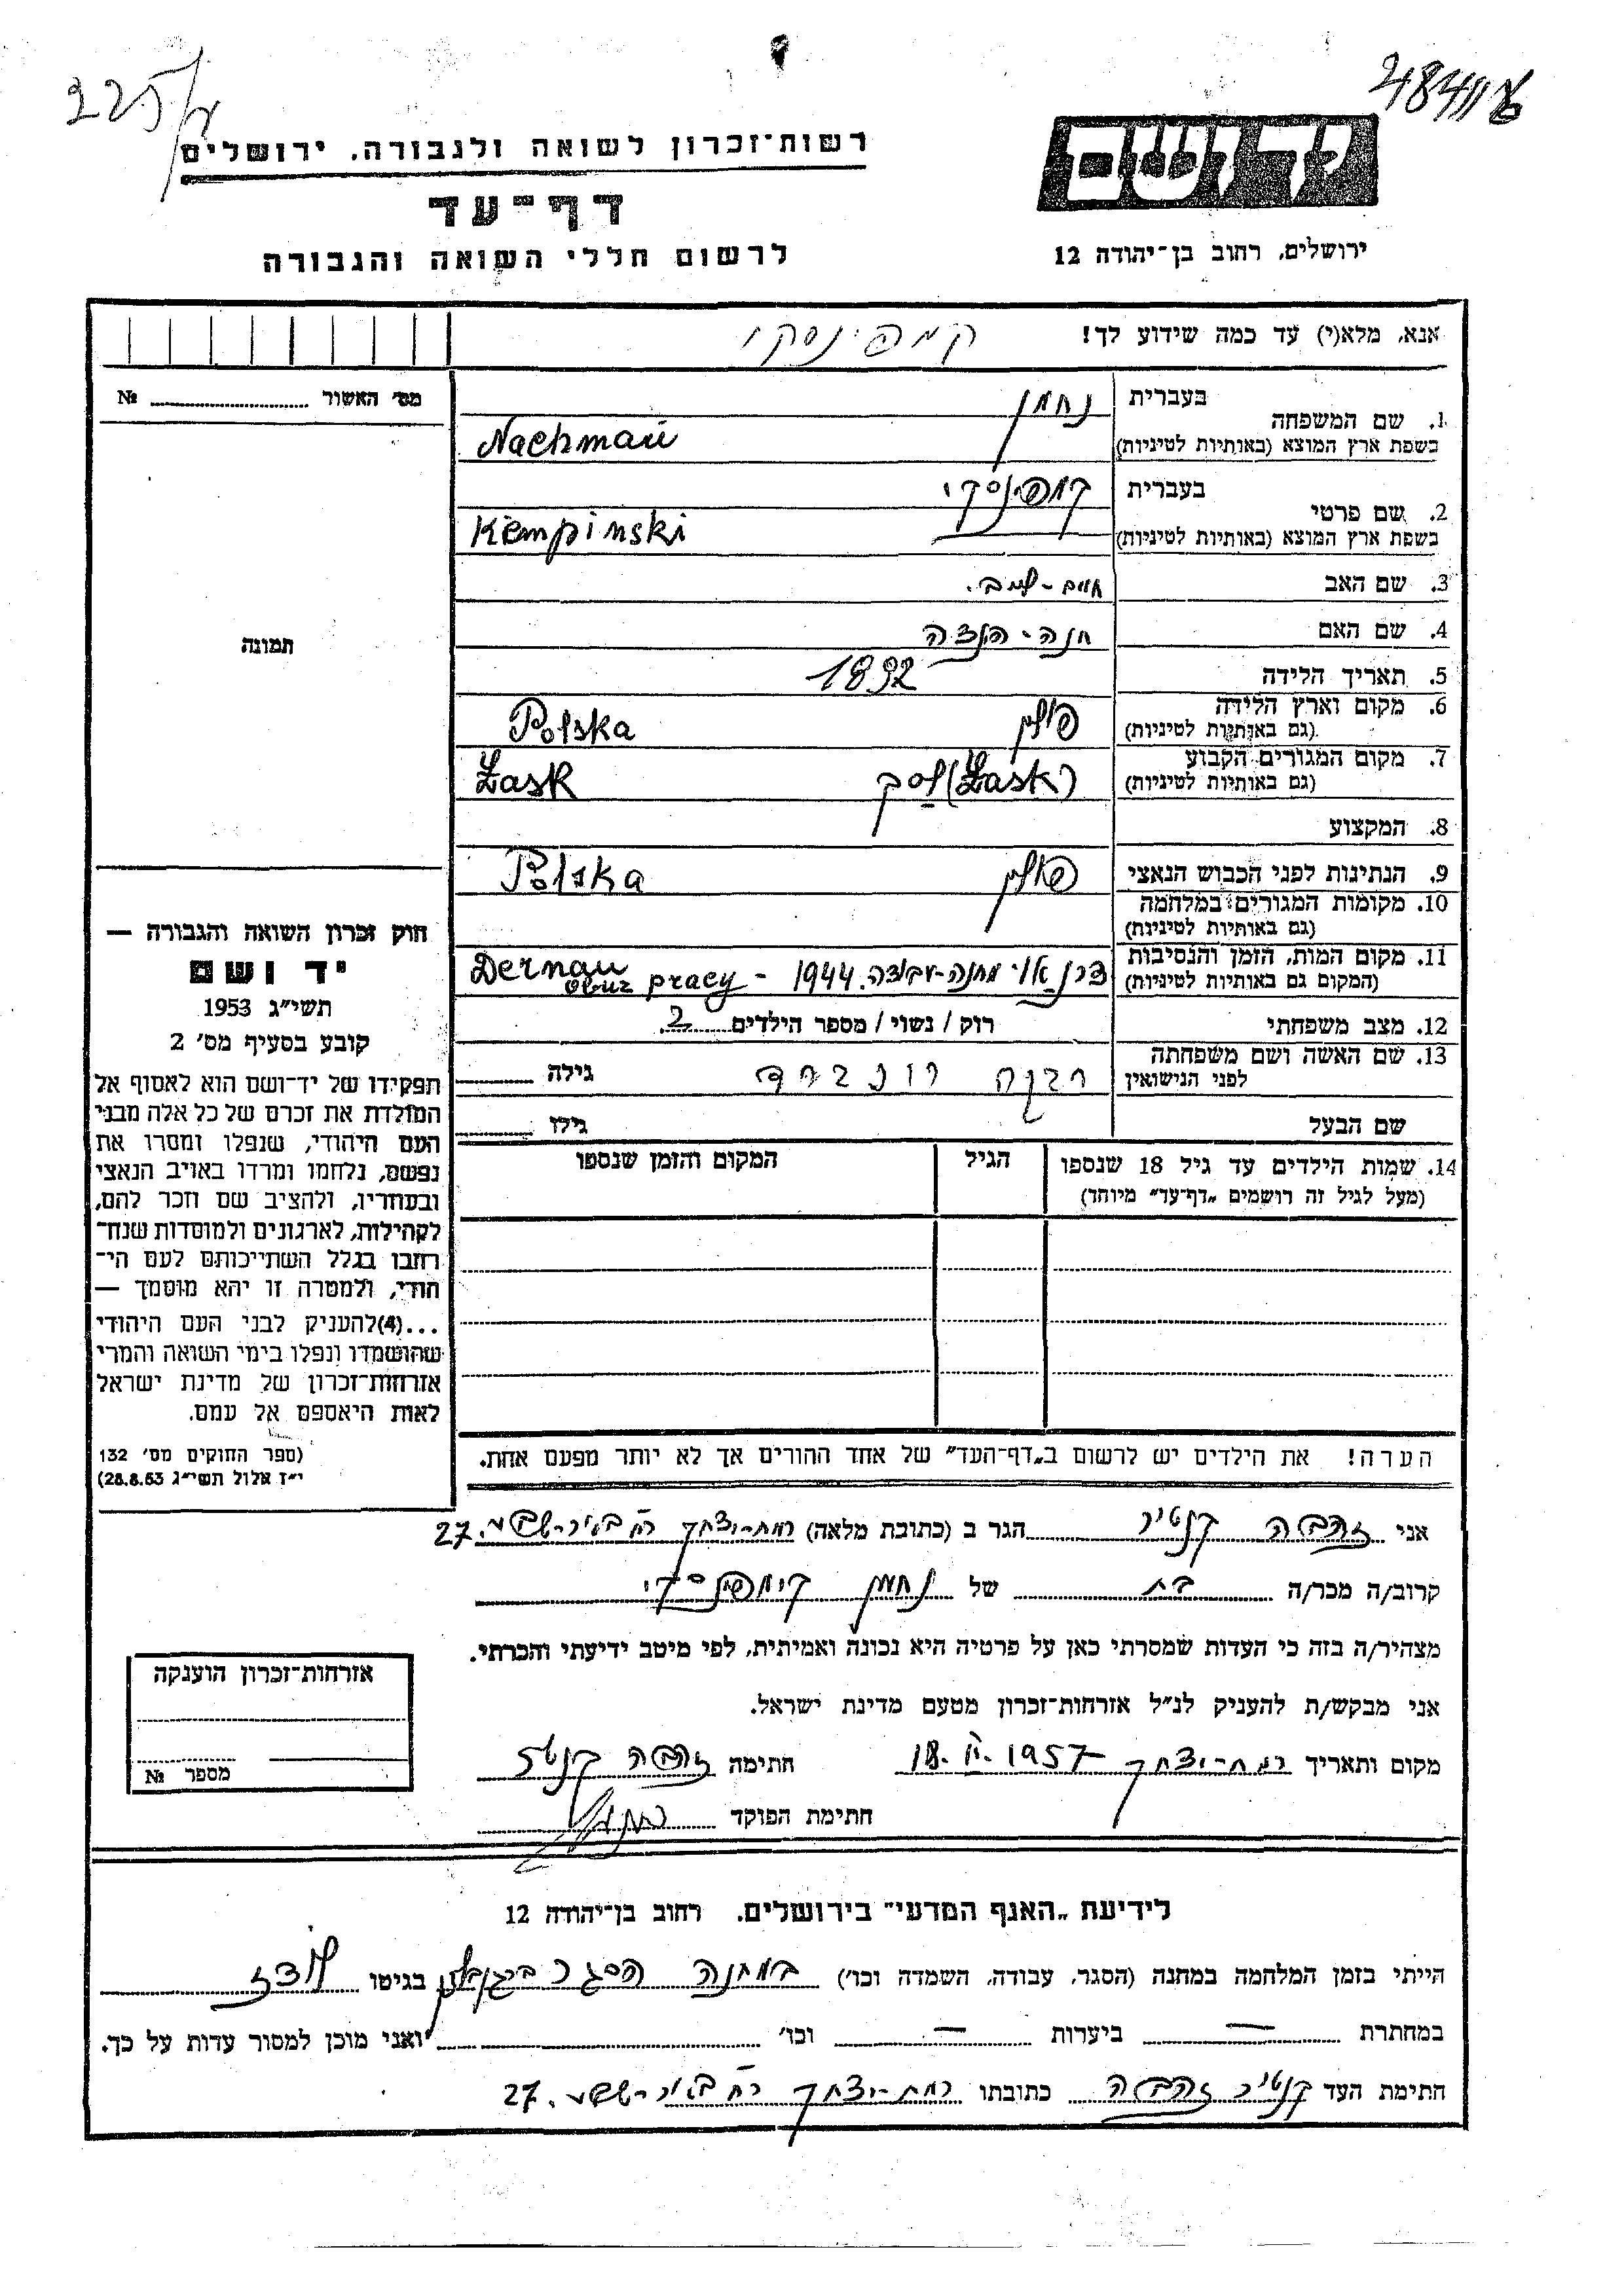 225/מ
48411ע
רשות־זכרון לשואה ולגבורה. ירושלים
דף־עד
לרשום חללי השואה והגבורה
יד ושם
ירושלים, רחוב בן־יהודה 12
אנא, מלא(י) עד כמה שידוע לך!
קמפינסקי
מס׳ האשור № 
תמונה
1. שם המשפחה
בעברית נחמן
בשפת ארץ המוצא (באותיות לטיניות) Nachman
2. שם פרטי
בעברית קמפינסקי
בשפת ארץ המוצא (באותיות לטיניות) Kempinski
3. שם האב חיים-
4. שם האם חנה-הנצה
5. תאריך הלידה 1892
6. מקום וארץ הלידה
(גם באותיות לטיניות) פולין Polska
7. מקום המגורים הקבוע
(גם באותיות לטיניות) (Łask) לסק Łask
8. המקצוע
9. הנתינות לפני הכבוש הנאצי פולין Polska
10. מקומות המגורים במלחמה
(גם באותיות לטיניות)
11. מקום המות, הזמן והנסיבות
(המקום גם באותיות לטיניות) דרנאוי מחנה-עבודה. 1944 - Dernau obuz pracy
12. מצב משפחתי רוק / נשוי / מספר הילדים 2.
13. שם האשה ושם משפחתה
לפני הנישואין רבקה גילה
שם הבעל גילו
14. שמות הילדים עד גיל 18 שנספו
(מעל לגיל זה רושמים „דף־עד״ מיוחד)
הגיל
המקום והזמן שנספו
חוק זכרון השואה והגבורה —
יד ושם
תשי״ג 1953
קובע בסעיף מס׳ 2
תפקידו של יד־ושם הוא לאסוף אל
המולדת את זכרם של כל אלה מבני
העם היהודי, שנפלו ומסרו את
נפשם, נלחמו ומרדו באויב הנאצי
ובעוזריו, ולהציב שם וזכר להם,
לקהילות, לארגונים ולמוסדות שנח־
רבו בגלל השתייכותם לעם הי־
הודי, ולמטרה זו יהא מוסמך —
...(4)להעניק לבני העם היהודי
שהושמדו ונפלו בימי השואה והמרי
אזרחות־זכרון של מדינת ישראל
לאות היאספם אל עמם.
(ספר החוקים מס׳ 132
י״ז אלול תשי״ג 28.8.53)
הערה! את הילדים יש לרשום ב„דף־העד״ של אחד ההורים אך לא יותר מפעם אחת.
אני זהבה קנטיר הגר ב (כתובת מלאה) רמת-יצחק רח׳ 27.
קרוב/ה מכר/ה בת של נחמן קימפינסקי
מצהיר/ה בזה כי העדות שמסרתי כאן על פרטיה היא נכונה ואמיתית, לפי מיטב ידיעתי והכרתי.
אני מבקש/ת להעניק לנ״ל אזרחות־זכרון מטעם מדינת ישראל.
מקום ותאריך רמת-יצחק 18. II. 1957 חתימה זהבה קנטיר
חתימת הפוקד
אזרחות־זכרון הוענקה
מספר №
לידיעת „האגף המדעי״ בירושלים. רחוב בן־יהודה 12
הייתי בזמן המלחמה במחנה (הסגר, עבודה, השמדה וכו׳) במחנה הסגר בגיטו לודז
במחתרת — ביערות — וכו׳ ואני מוכן למסור עדות על כך.
חתימת העד קנטיר זהבה כתובתו רמת-יצחק רח׳ 27.